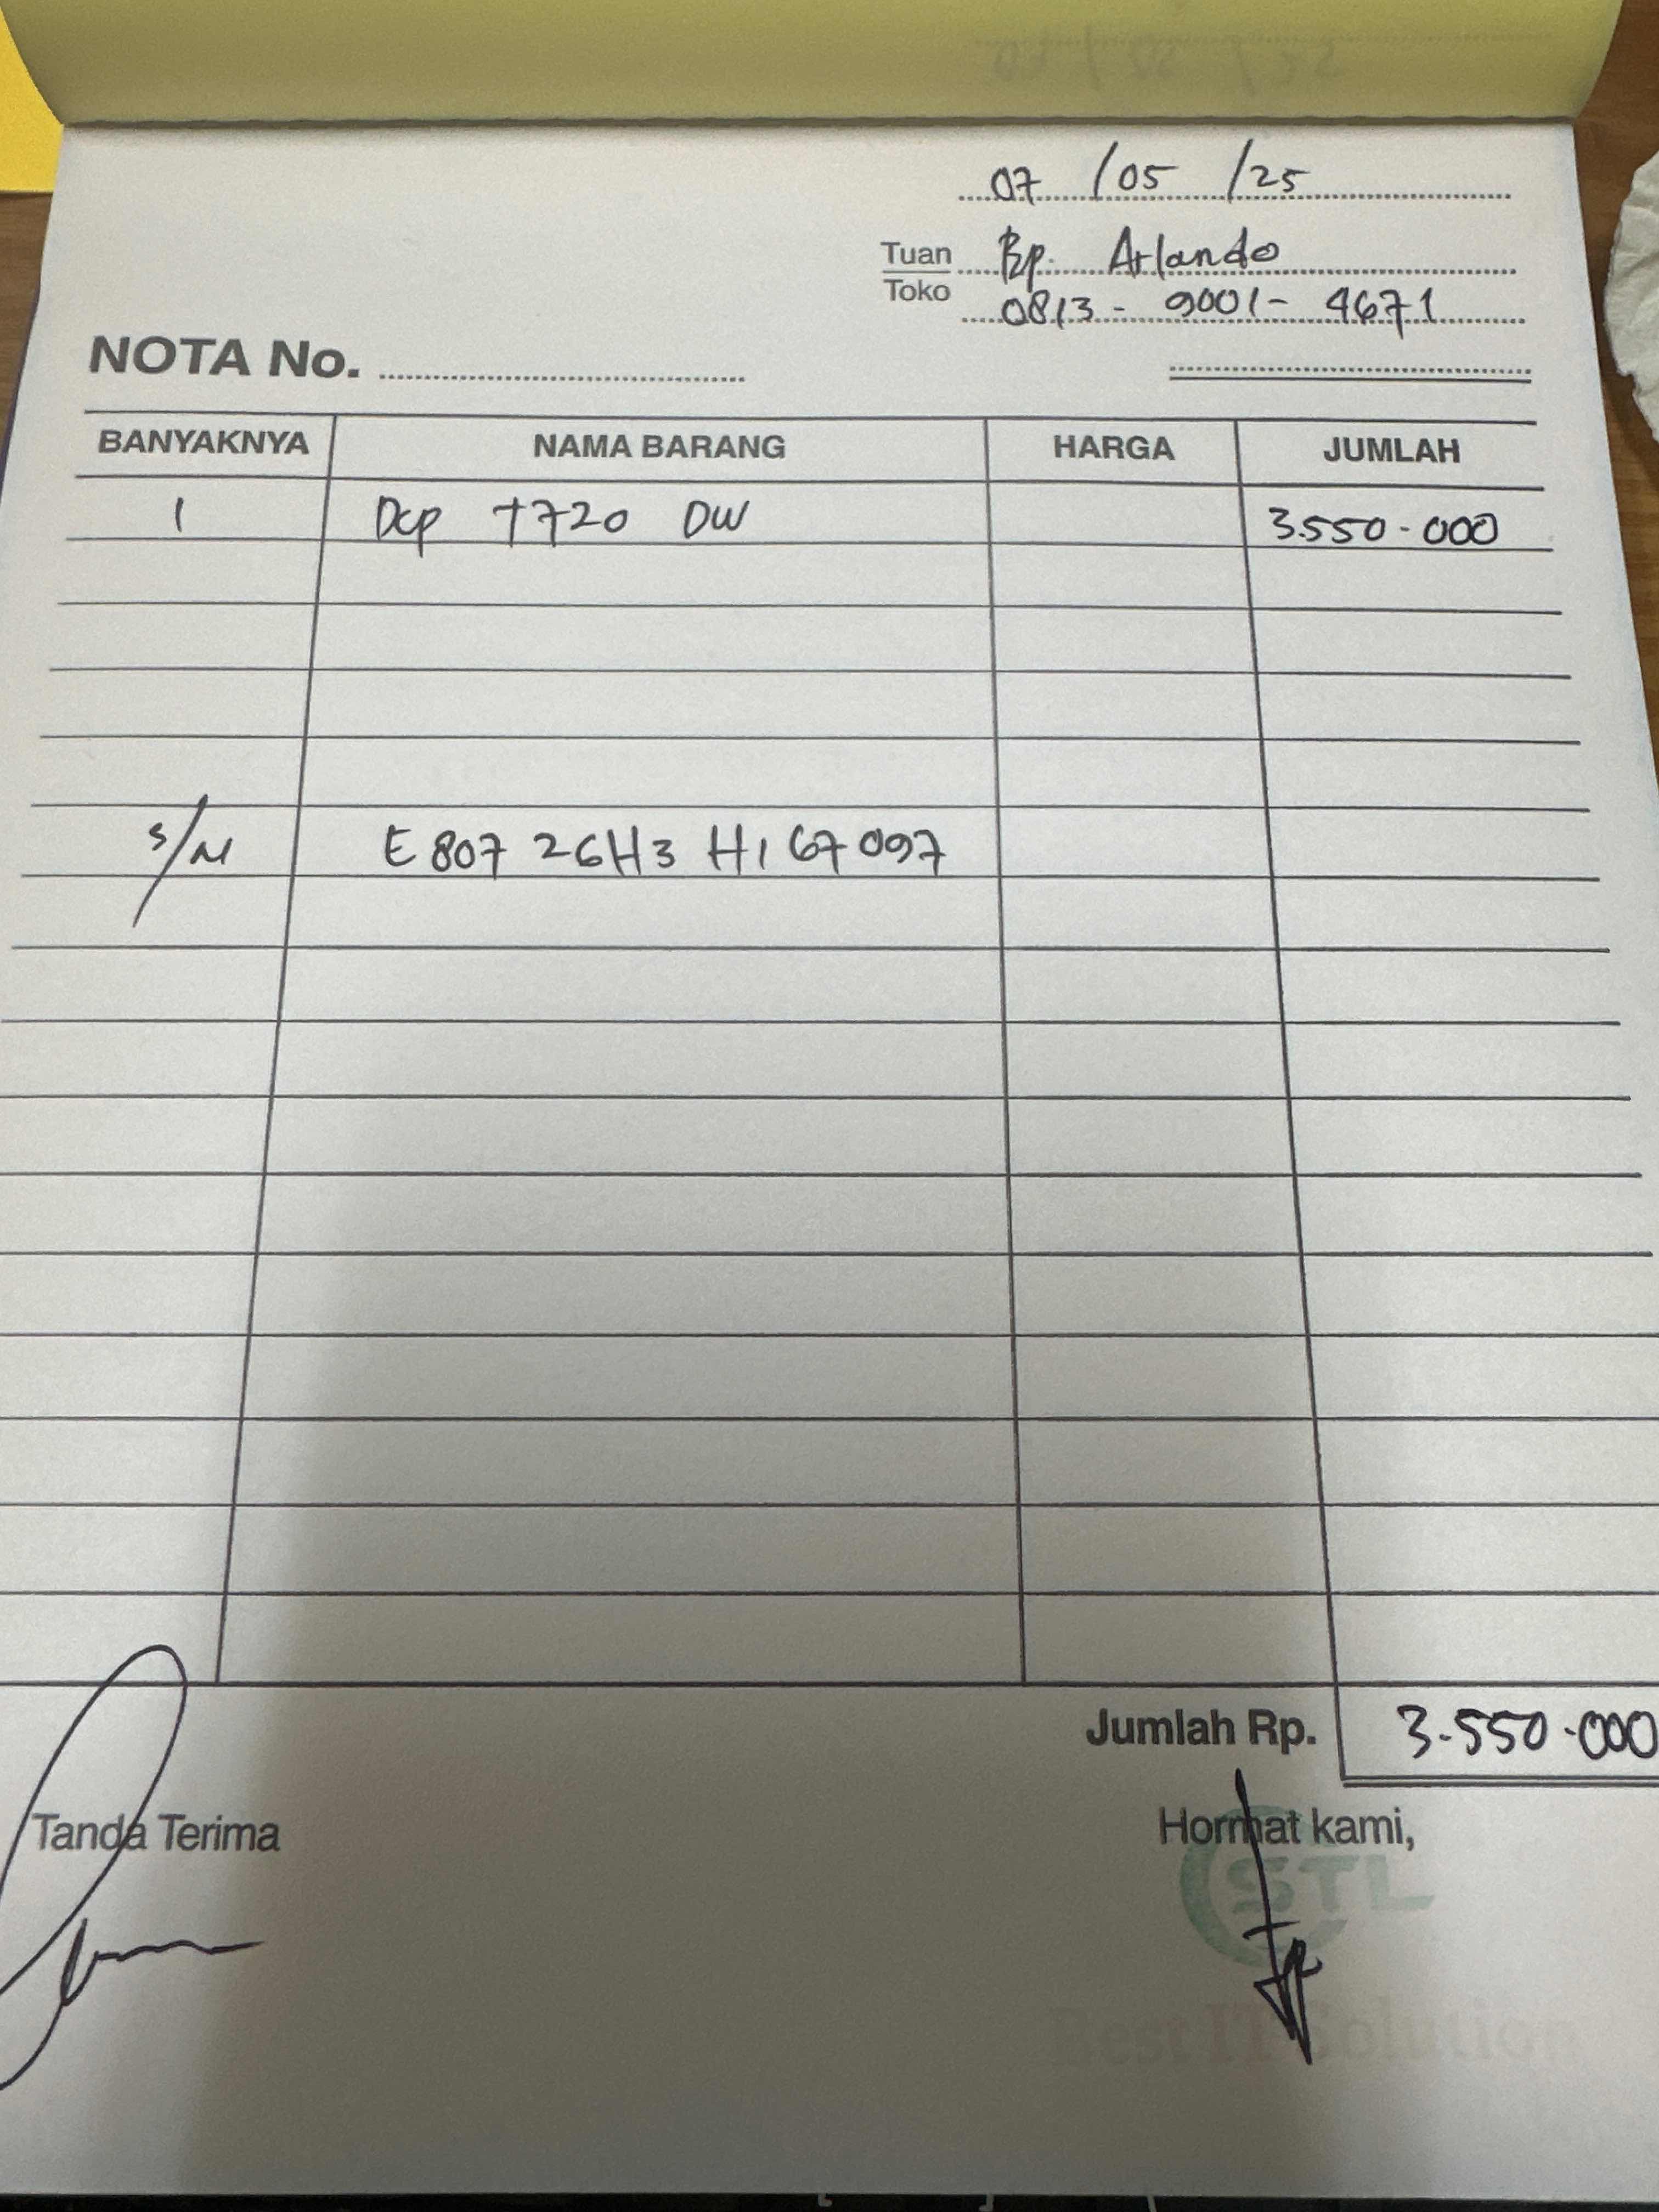 07 / 05 / 25
Tuan Bp. Arlando
Toko 0813 - 9001 - 4671
NOTA No.
BANYAKNYA NAMA BARANG HARGA JUMLAH
1 Dcp T720 DW 3.550.000
S/N E 807 26H3 H1 67097
Jumlah Rp. 3.550.000
Tanda Terima Hormat kami,
STL
Best IT Solution